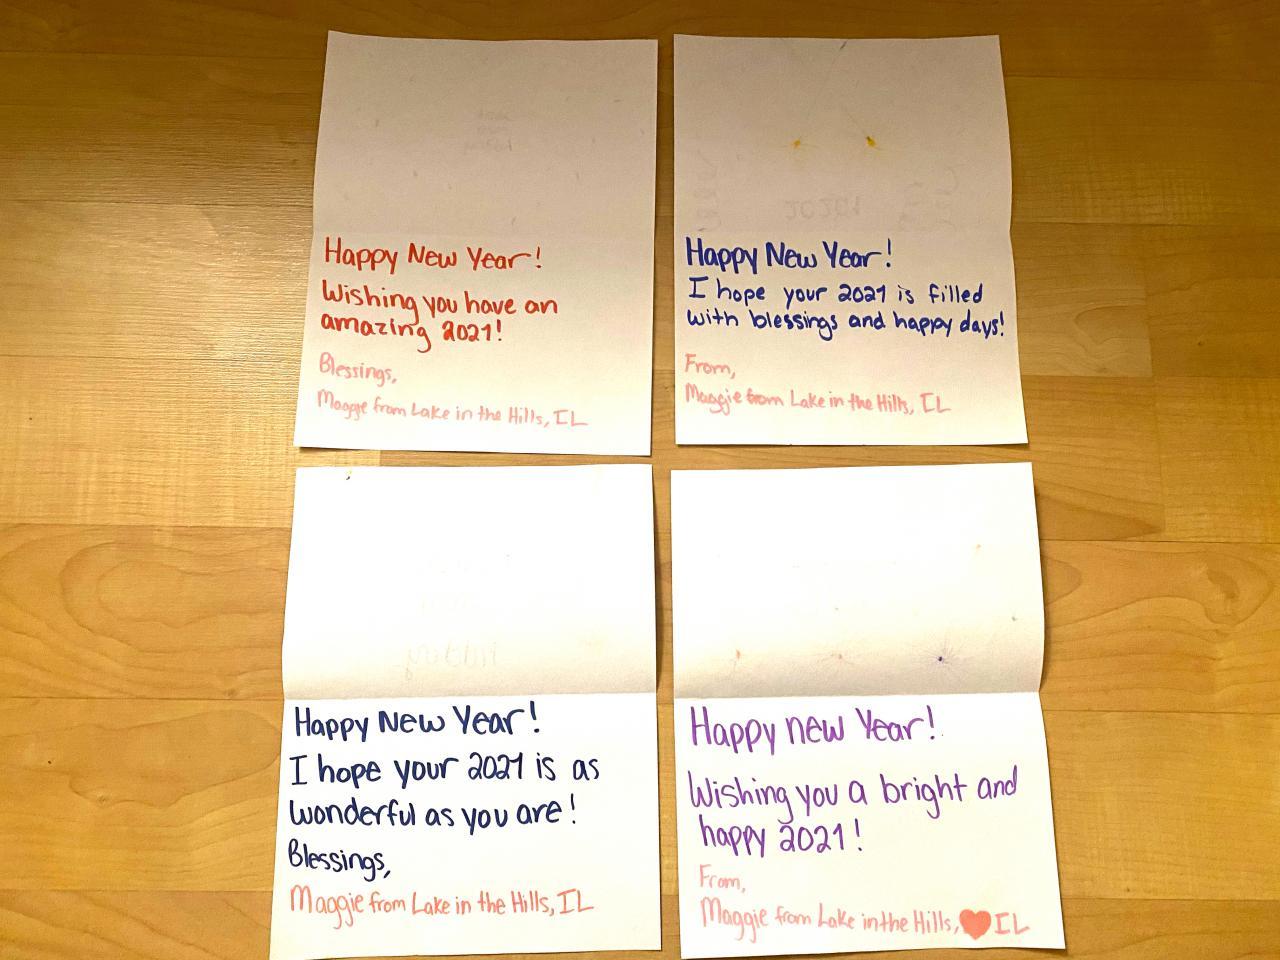 Happy New Year!
Wishing you have an
amazing 2021!
Blessings,
Maggie from Lake in the Hills, IL
Happy New Year!
I hope your 2021 is filled
with blessings and happy days!
From,
Maggie from Lake in the Hills, IL
Happy New Year!
I hope your 2021 is as
wonderful as you are!
Blessings,
Maggie from Lake in the Hills, IL
Happy new Year!
Wishing you a bright and
happy 2021!
From,
Maggie from Lake in the Hills, IL